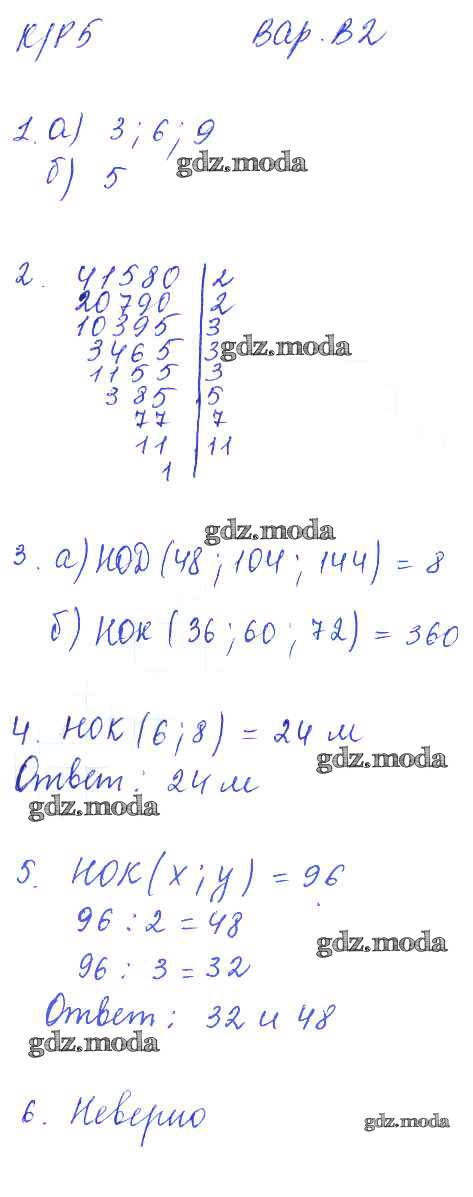 К/Р 5 Вар. В2
1. а) 3; 6; 9
gdz.moda
б) 5
2. 41580 | 2
20790 | 2
10395 | 3
3465 | 3
gdz.moda
1155 | 3
385 | 5
77 | 7
11 | 11
1
gdz.moda
3. а) НОД (48; 104; 144) = 8
б) НОК (36; 60; 72) = 360
4. НОК (6; 8) = 24 м
gdz.moda
Ответ: 24 м
gdz.moda
5. НОК (х; у) = 96
96 : 2 = 48
gdz.moda
96 : 3 = 32
Ответ: 32 и 48
gdz.moda
6. Неверно
gdz.moda